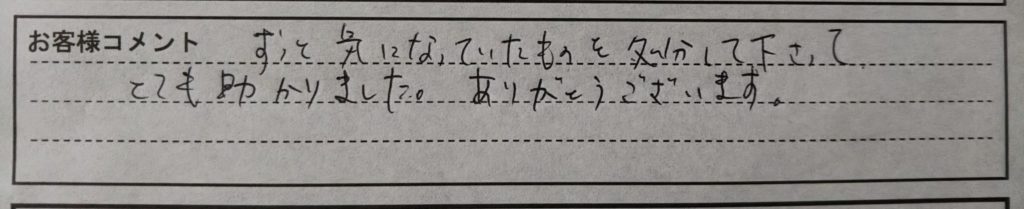 お客様コメント ずっと気になっていたものを処分して下さって
とても助かりました。ありがとうございます。